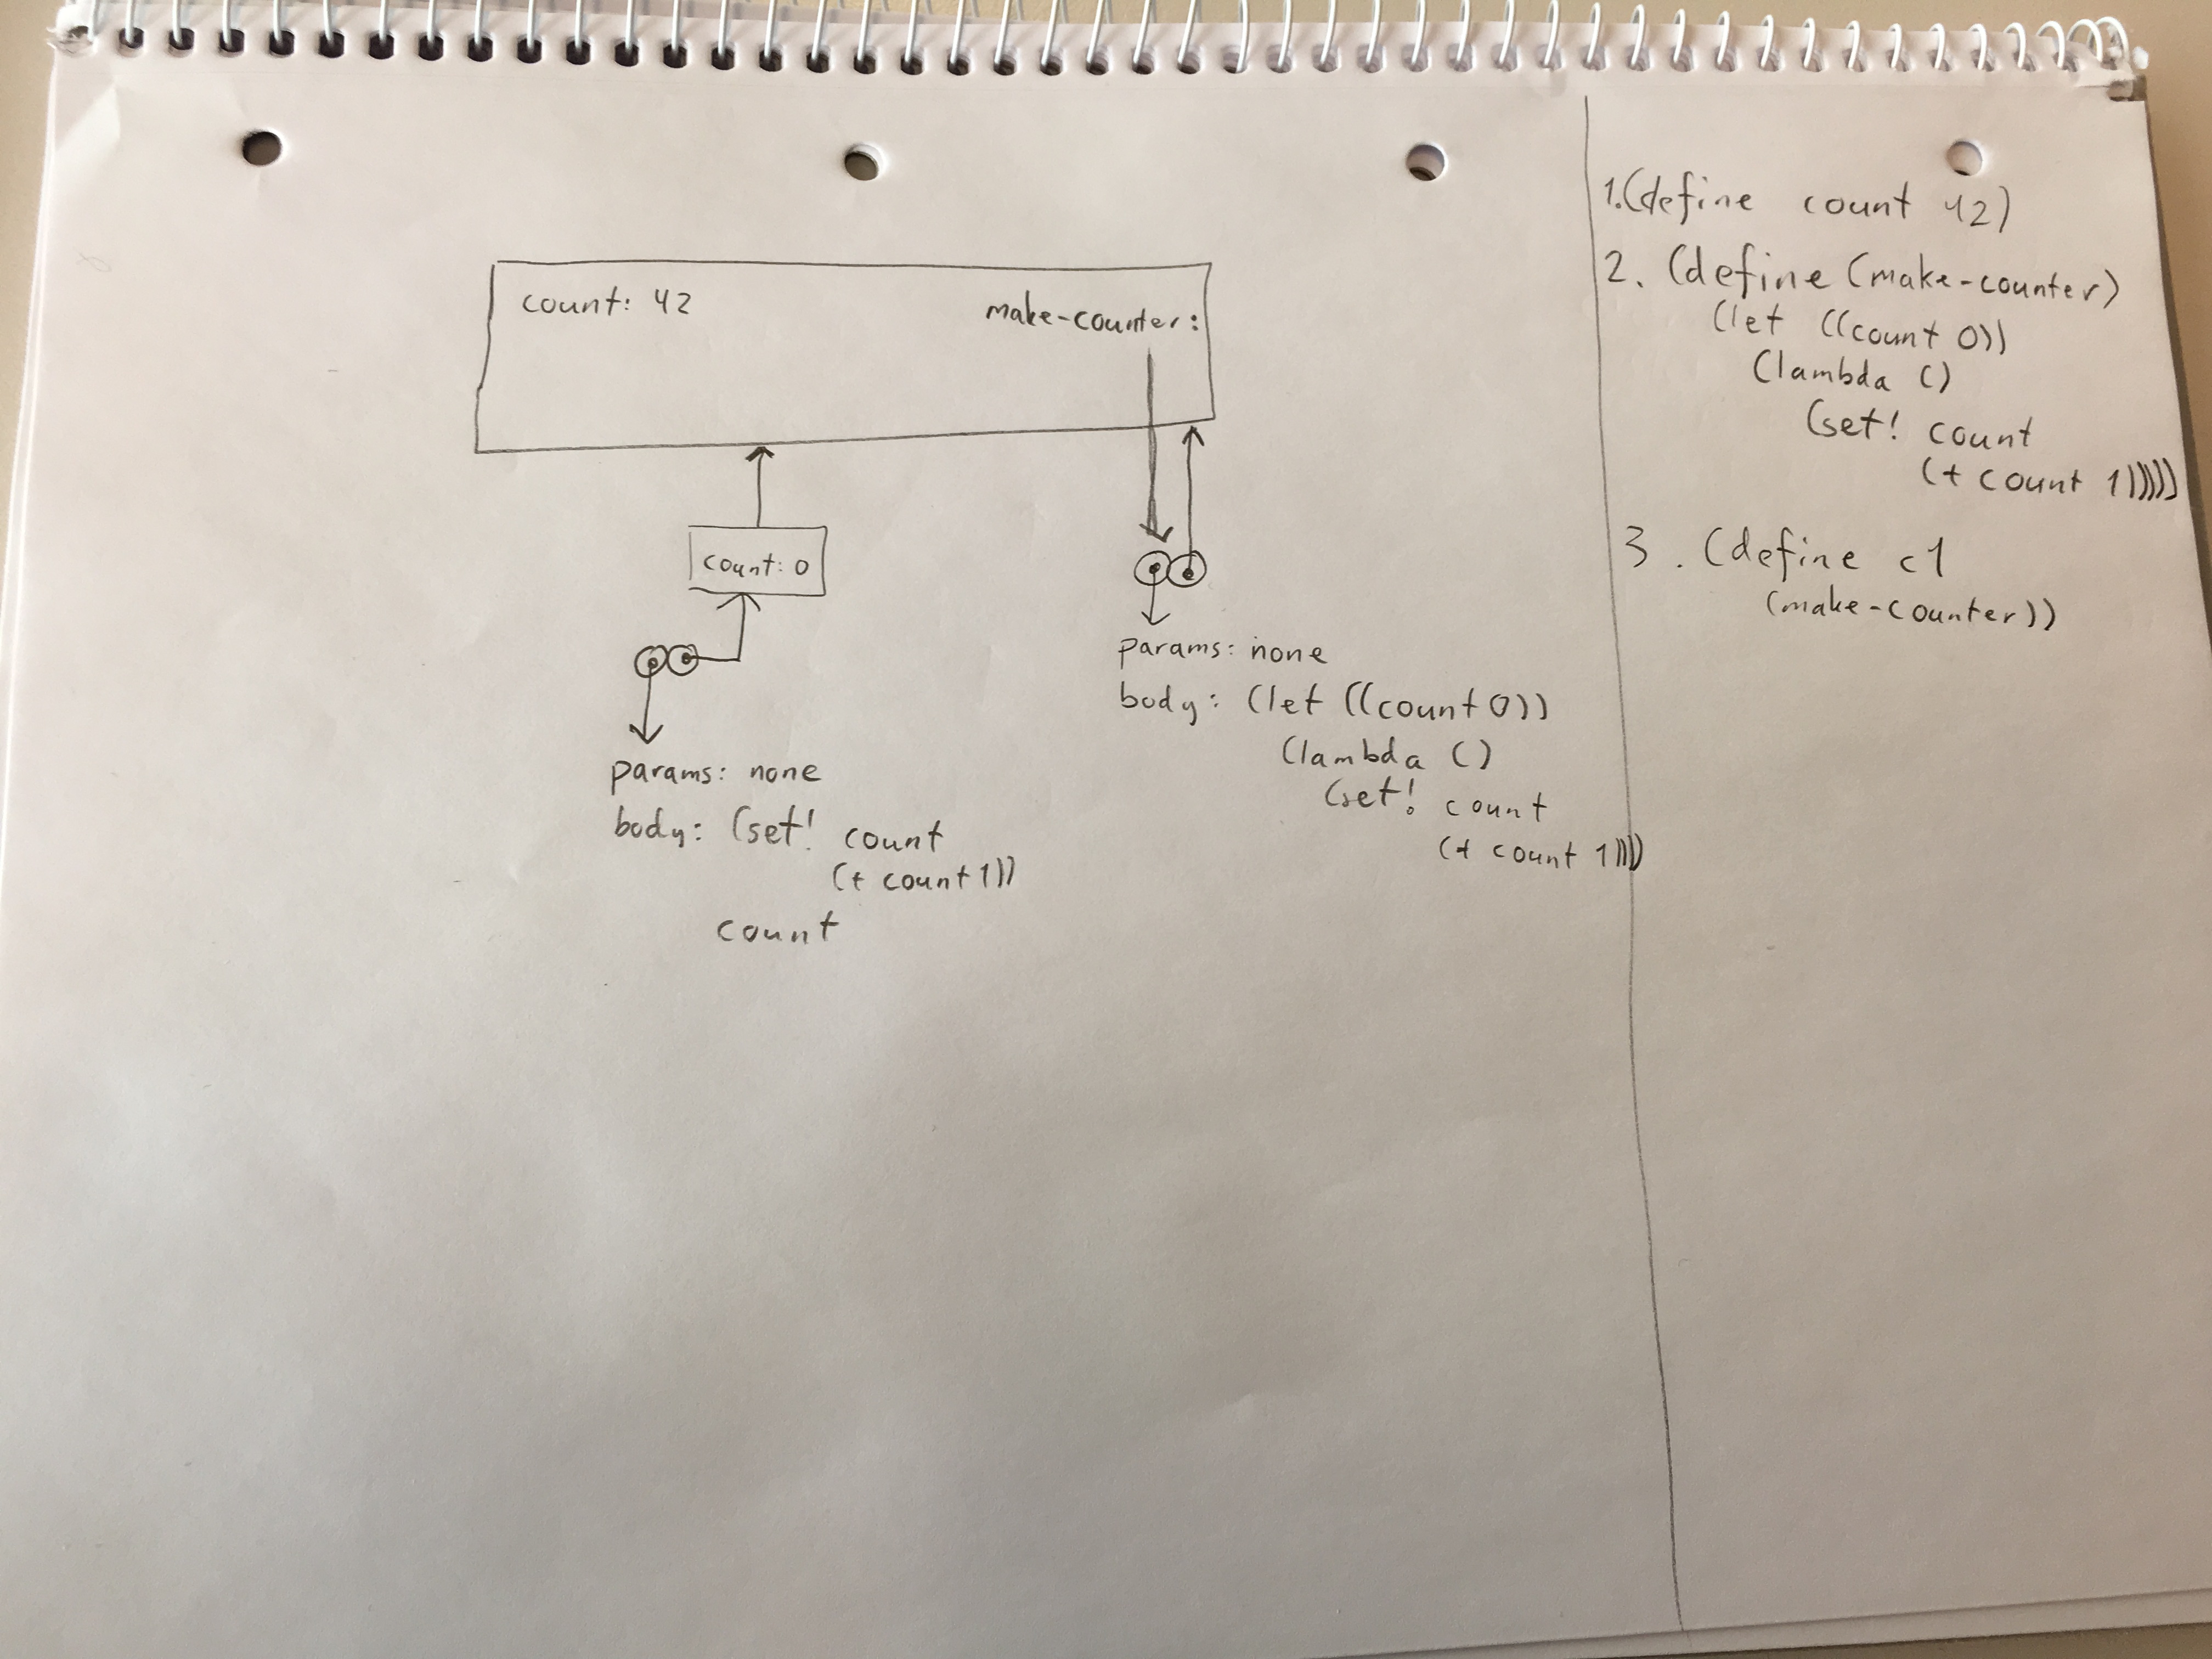 count: 42
make-counter:
count: 0
params: none
body: (set! count
(+ count 1))
count
params: none
body: (let ((count 0))
(lambda ()
(set! count
(+ count 1))))
1.(define count 42)
2. (define (make-counter)
(let ((count 0))
(lambda ()
(set! count
(+ count 1)))))
3. (define c1
(make-counter))